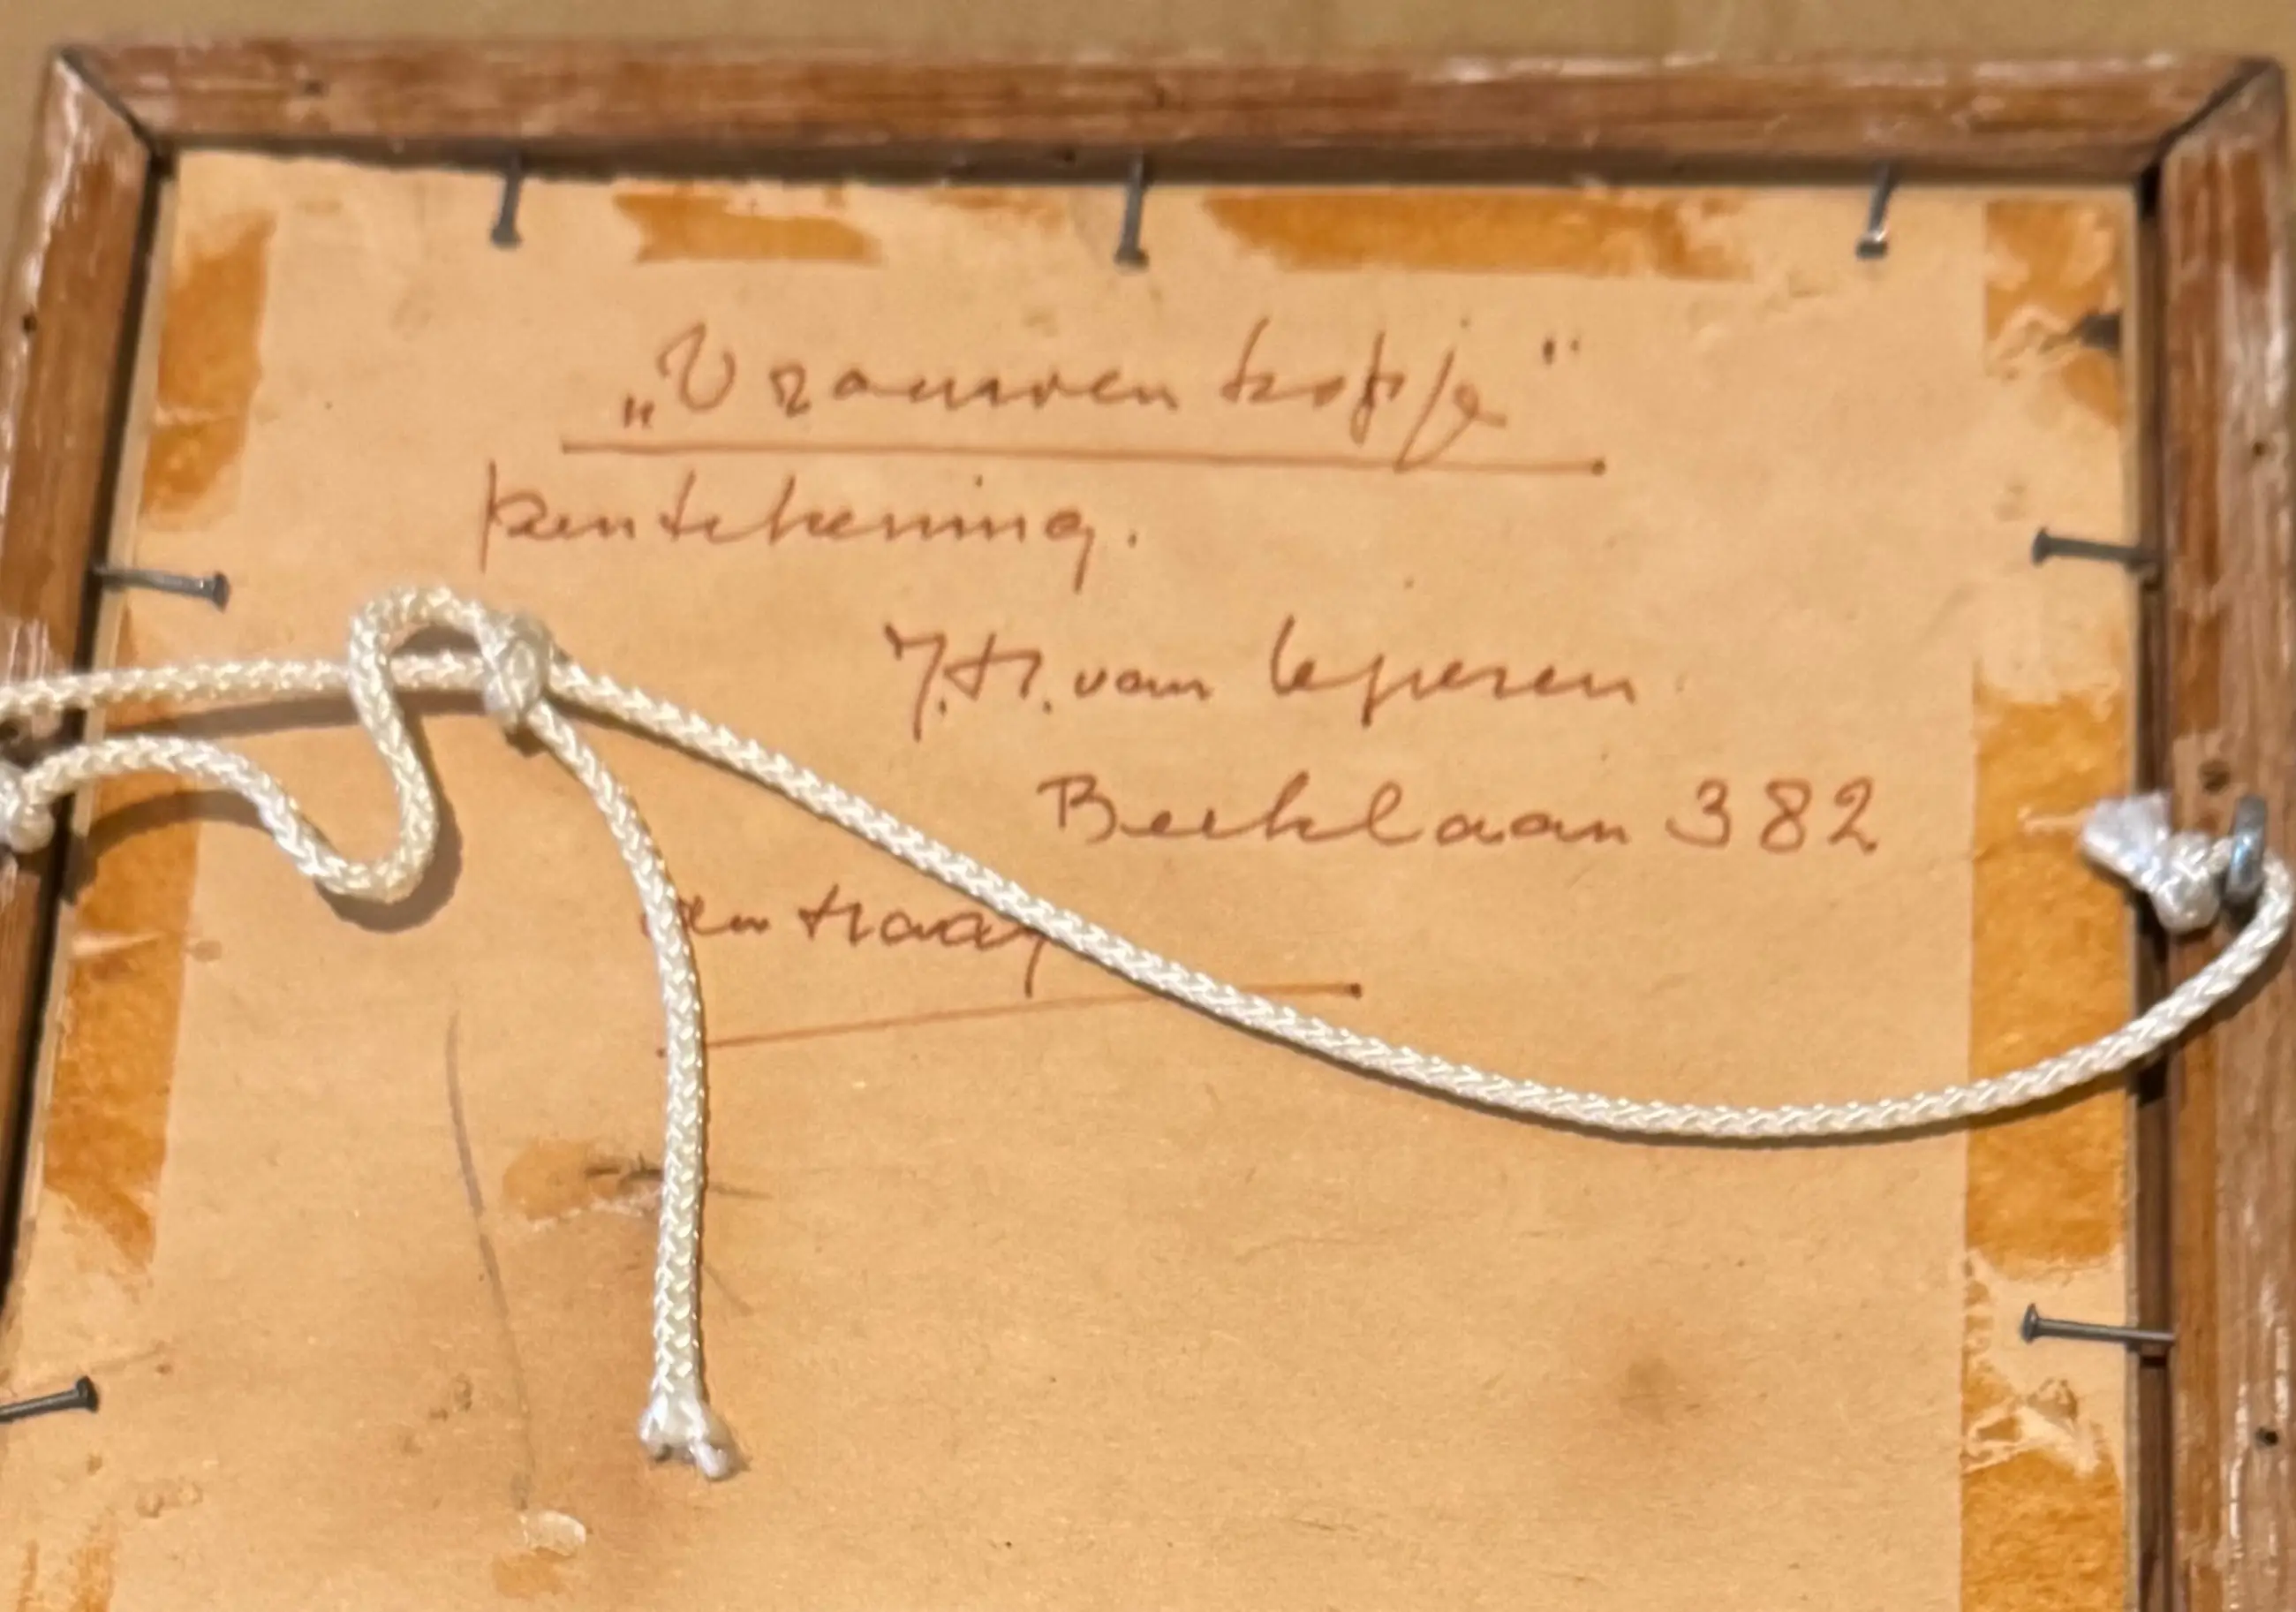 „Vrouwenkopje"
pentekening.
J.H. van
Beeklaan 382
den Haag